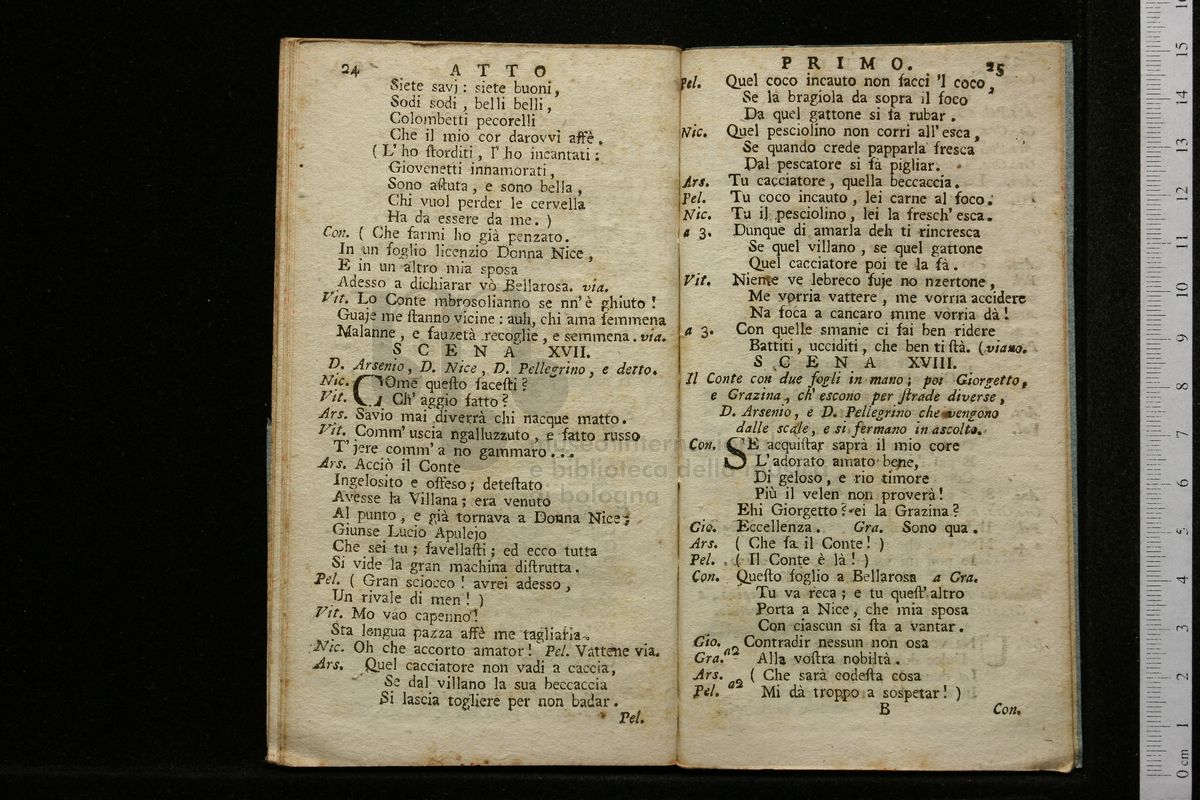 24 ATTO
Siete savj: siete buoni,
Sodi sodi, belli belli,
Colombetti pecorelli
Che il mio cor darovvi affè.
(L'ho storditi, l'ho incantati:
Giovenetti innamorati,
Sono astuta, e sono bella,
Chi vuol perder le cervella
Ha da essere da me.)
Con. (Che farmi ho già penzato.
In un foglio licenzio Donna Nice,
E in un altro mia sposa
Adesso a dichiarar vò Bellarosa. via.
Vit. Lo Conte mbrosolianno se nn'è ghiuto!
Guaje me stanno vicine: auh, chi ama femmena
Malanne, e fauzetà recoglie, e semmena. via.
SCENA XVII.
D. Arsenio, D. Nice, D. Pellegrino, e detto.
Nic. COme questo facesti?
Vit. Ch'aggio fatto?
Ars. Savio mai diverrà chi nacque matto.
Vit. Comm'uscia ngalluzzuto, e fatto russo
T'jere comm'a no gammaro...
Ars. Acciò il Conte
Ingelosito e offeso; detestato
Avesse la Villana; era venuto
Al punto, e già tornava a Donna Nice;
Giunse Lucio Apulejo
Che sei tu; favellasti; ed ecco tutta
Si vide la gran machina distrutta.
Pel. (Gran sciocco! avrei adesso,
Un rivale di men!)
Vit. Mo vao capenno!
Sta lengua pazza affè me tagliaria.
Nic. Oh che accorto amator! Pel. Vattene via.
Ars. Quel cacciatore non vadi a caccia,
Se dal villano la sua beccaccia
Si lascia togliere per non badar.
Pel.
PRIMO. 25
Pel. Quel coco incauto non facci 'l coco,
Se la bragiola da sopra il foco
Da quel gattone si fa rubar.
Nic. Quel pesciolino non corri all'esca,
Se quando crede papparla fresca
Dal pescatore si fà pigliar.
Ars. Tu cacciatore, quella beccaccia.
Pel. Tu coco incauto, lei carne al foco.
Nic. Tu il pesciolino, lei la fresch'esca.
a 3. Dunque di amarla deh ti rincresca
Se quel villano, se quel gattone
Quel cacciatore poi te la fà.
Vit. Niente ve lebreco fuje no nzertone,
Me vorria vattere, me vorria accidere
Na foca a cancaro mme vorria dà!
a 3. Con quelle smanie ci fai ben ridere
Battiti, ucciditi, che ben ti stà. (viano.
SCENA XVIII.
Il Conte con due fogli in mano; poi Giorgetto,
e Grazina, ch'escono per strade diverse,
D. Arsenio, e D. Pellegrino che vengono
dalle scale, e si fermano in ascolto.
Con. SE acquistar saprà il mio core
L'adorato amato bene,
Di geloso, e rio timore
Più il velen non proverà!
Ehi Giorgetto? ei la Grazina?
Gio. Eccellenza. Gra. Sono qua.
Ars. (Che fa il Conte!)
Pel. (Il Conte è là!)
Con. Questo foglio a Bellarosa a Gra.
Tu va reca; e tu quest'altro
Porta a Nice, che mia sposa
Con ciascun si sta a vantar.
Gio. Contradir nessun non osa
Gra. a2 Alla vostra nobiltà.
Ars. (Che sarà codesta cosa
Pel. a2 Mi dà troppo a sospetar!)
B Con.